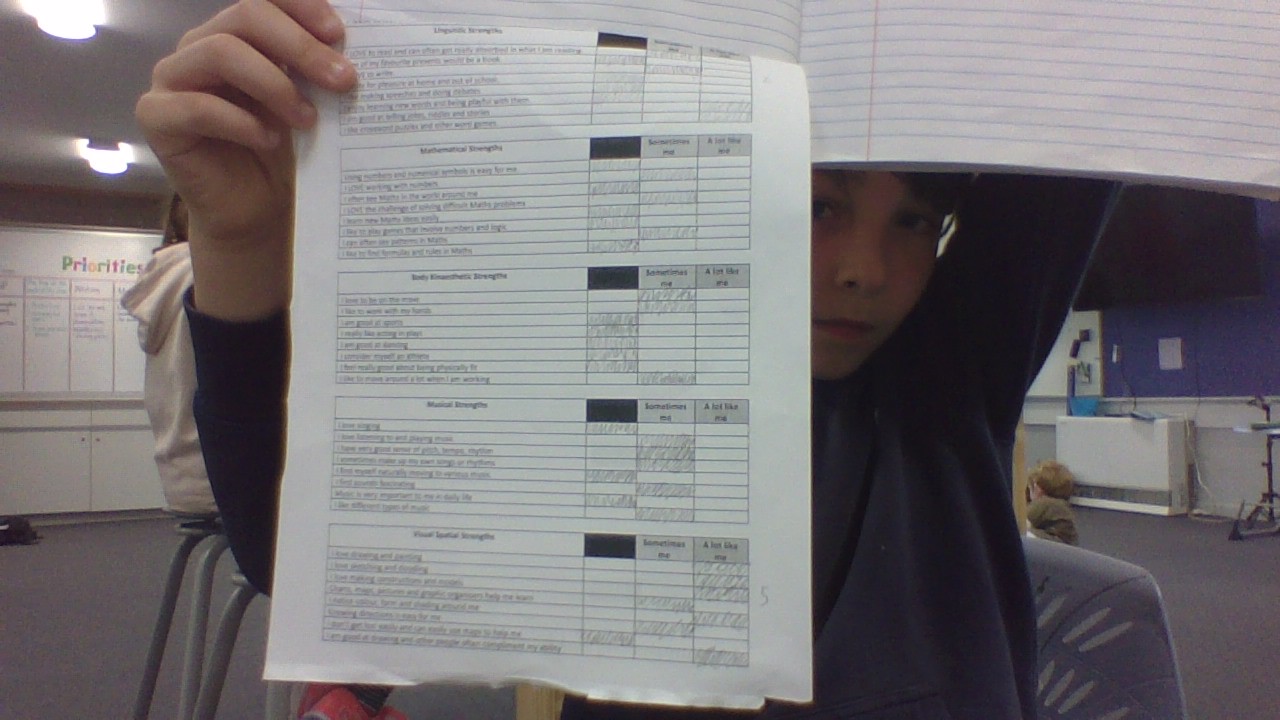 Priorities
Linguistic Strengths
LOVE to read and can often get really absorbed in what I am reading
of my favourite presents would be a book
to write
for pleasure at home and out of school
making speeches and doing debates
learning new words and being playful with them
I am good at telling jokes, riddles and stories
I like crossword puzzles and other word games
Mathematical Strengths Sometimes me A lot like me
Using numbers and numerical symbols is easy for me
I LOVE working with numbers
I often see Maths in the world around me
I LOVE the challenge of solving difficult Maths problems
I learn new Maths ideas easily
I like to play games that involve numbers and logic
I can often see patterns in Maths
I like to find formulas and rules in Maths
Body Kinaesthetic Strengths Sometimes me A lot like me
I love to be on the move
I like to work with my hands
I am good at sports
I really like acting in plays
I am good at dancing
I consider myself an athlete
I feel really good about being physically fit
I like to move around a lot when I am working
Musical Strengths Sometimes me A lot like me
I love singing
I love listening to and playing music
I have very good sense of pitch, tempo, rhythm
I sometimes make up my own songs or rhythms
I find myself naturally moving to various music
I find sounds fascinating
Music is very important to me in daily life
I like different types of music
Visual Spatial Strengths Sometimes me A lot like me
I love drawing and painting
I love sketching and doodling
I love making constructions and models
Charts, maps, pictures and graphic organisers help me learn
I notice colour, form and shading around me
Following directions is easy for me
I don't get lost easily and can easily use maps to help me
I am good at drawing and other people often compliment my ability
5